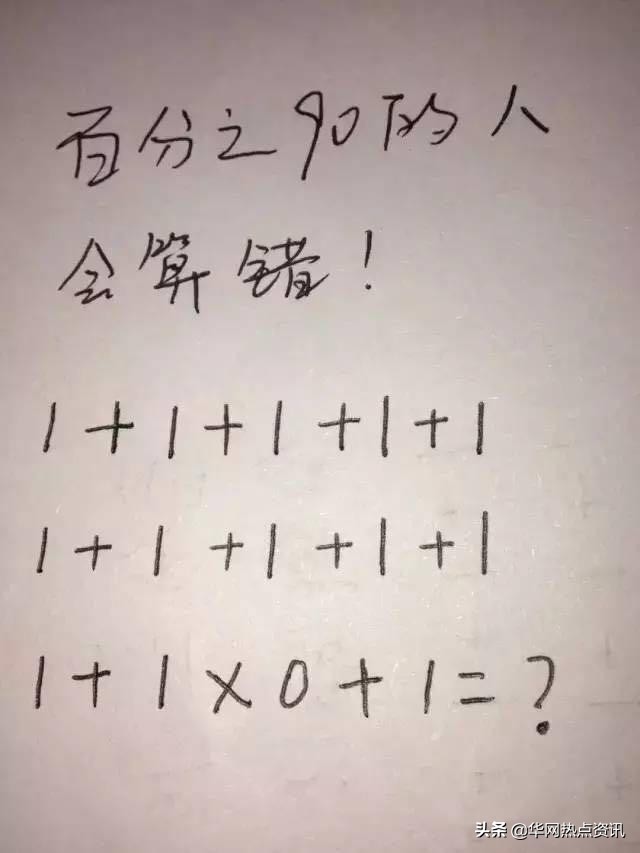 百分之90的人
会算错！
1+1+1+1+1
1+1+1+1+1
1+1×0+1=?
头条 @华网热点资讯